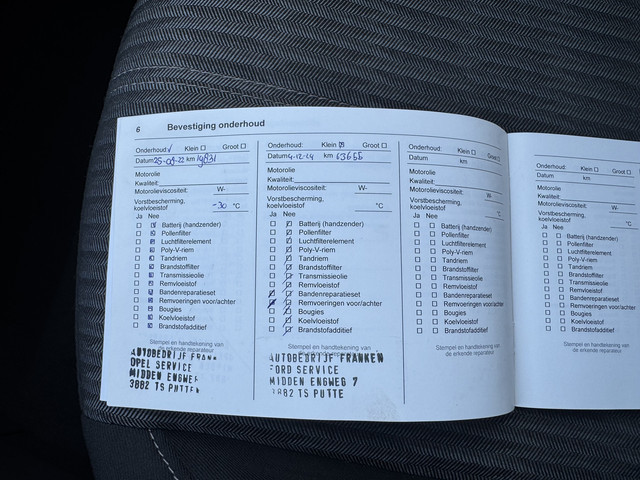 6 Bevestiging onderhoud
Onderhoud √ Klein ☐ Groot ☐
Datum 25-08-22 km
Motorolie
Kwaliteit:
Motorolieviscositeit: W-
Vorstbescherming,
koelvloeistof -30 °C
Ja Nee
Batterij (handzender)
Pollenfilter
Luchtfilterelement
Poly-V-riem
Tandriem
Brandstoffilter
Transmissieolie
Remvloeistof
Bandenreparatieset
Remvoeringen voor/achter
Bougies
Koelvloeistof
Brandstofadditief
Stempel en handtekening van
de erkende reparateur
AUTOBEDRIJF FRANK
OPEL SERVICE
MIDDEN ENGWE
3882 TS PUTTE
Onderhoud: Klein ☒ Groot ☐
Datum 4-12-24 km 63655
Motorolie
Kwaliteit:
Motorolieviscositeit: W-
Vorstbescherming,
koelvloeistof °C
Ja Nee
Batterij (handzender)
Pollenfilter
Luchtfilterelement
Poly-V-riem
Tandriem
Brandstoffilter
Transmissieolie
Remvloeistof
Bandenreparatieset
Remvoeringen voor/achter
Bougies
Koelvloeistof
Brandstofadditief
Stempel en handtekening van
AUTOBEDRIJF FRANKEN
FORD SERVICE
MIDDEN ENGWEG 7
3882 TS PUTTE
Onderhoud: Klein ☐ Groot ☐
Datum km
Motorolie
Kwaliteit:
Motorolieviscositeit: W-
Vorstbescherming,
koelvloeistof °C
Ja Nee
Batterij (handzender)
Pollenfilter
Luchtfilterelement
Poly-V-riem
Tandriem
Brandstoffilter
Transmissieolie
Remvloeistof
Bandenreparatieset
Remvoeringen voor/achter
Bougies
Koelvloeistof
Brandstofadditief
Stempel en handtekening van
de erkende reparateur
Onderhoud: Klein ☐
Datum km
Motorolie
Kwaliteit:
Motorolieviscositeit: W-
Vorstbescherming,
koelvloeistof
Ja Nee
Batterij (handzender)
Pollenfilter
Luchtfilterelement
Poly-V-riem
Tandriem
Brandstoffilter
Transmissieolie
Remvloeistof
Bandenreparatieset
Remvoeringen voor/achter
Bougies
Koelvloeistof
Brandstofadditief
Stempel en handtekening van
de erkende reparateur